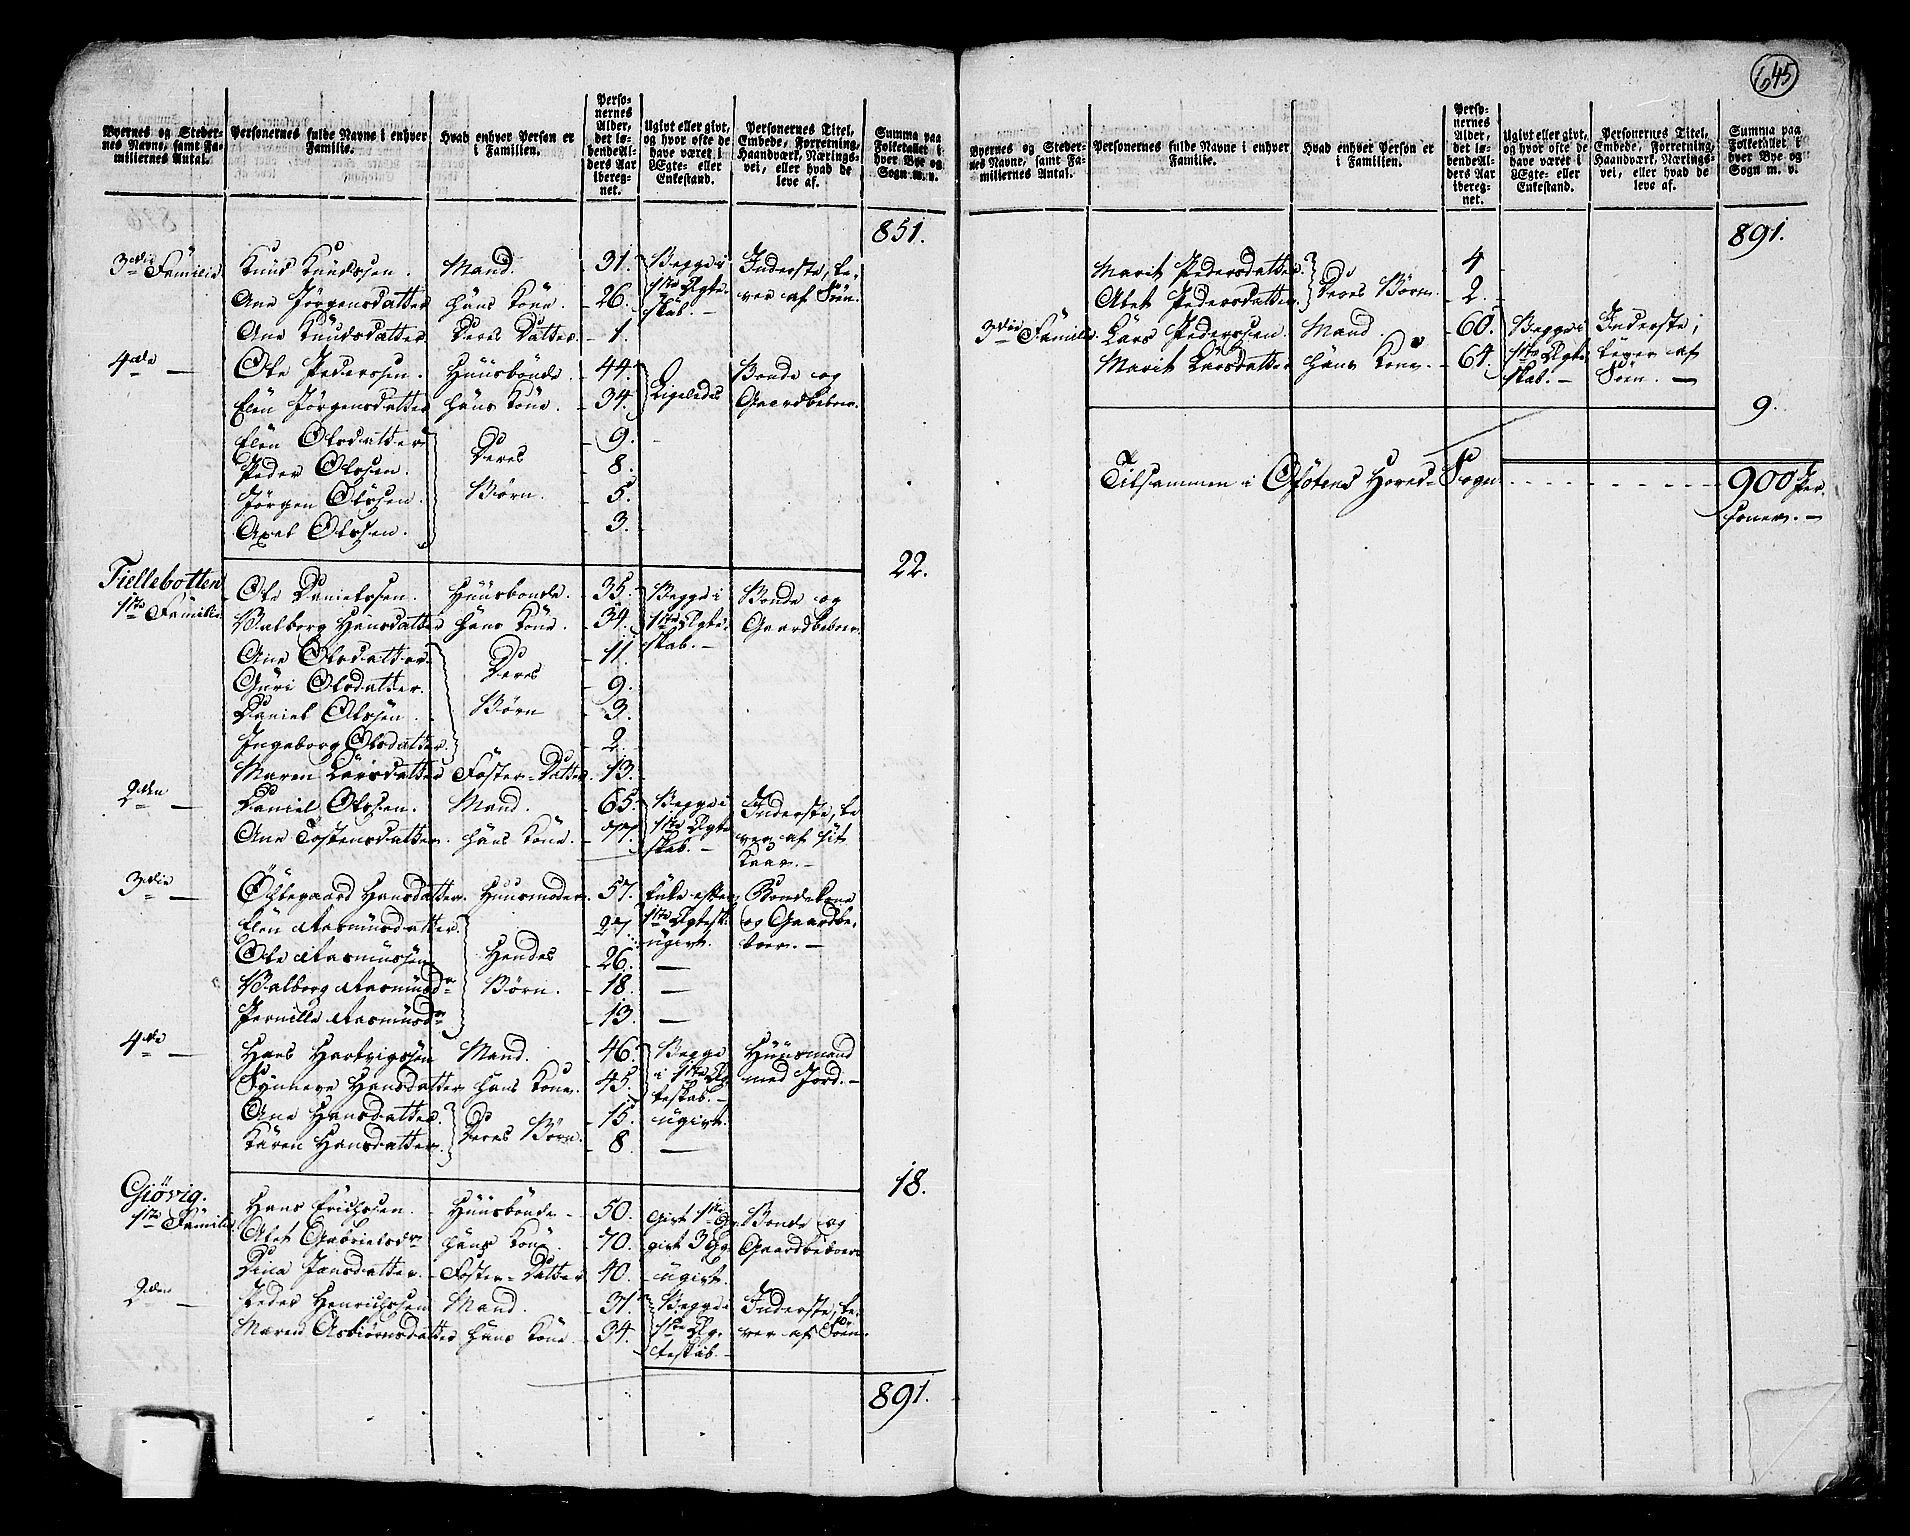 645
Byernes og Steder-nes Navne, samt Fa-miliernes Antal.
Personernes fulde Navne i enhver Familie.
Hvad enhver Person er i Familien.
Perso-nernes Alder, det lø-bende Al-ders Aar ibereg-net.
Ugivt eller givt, og hvor ofte de have været i Ægte- eller Enkestand.
Personernes Titel, Embede, Forretning, Haandværk, Nærings-vei, eller hvad de leve af.
Summa paa Folketallet i hver Bye og Sogn m. v.
851.
3die Familie Knud Knudssen. Mand. 31. Begge i 1ste Ægteskab. Inderste, lever af Söen.
Ane Jörgensdatter hans Kone. 26.
Ane Knudsdatter Deres Datter. 1.
4de — Ole Pederssen. Huusbonde. 44. Ligeledes Bonde og Gaardbeboer.
Elen Jörgensdatter hans Kone. 34.
Elen Olsdatter Deres Börn. 9.
Peder Olssen. 8.
Jörgen Olssen. 5.
Axel Olssen. 3.
22.
Fiellebotten
1ste Familie Ole Danielssen. Huusbonde. 35. Begge i 1ste Ægteskab. — Bonde og Gaardbeboer.
Walborg Hansdatter hans Kone. 34.
Ane Olsdatter Deres Börn 11.
Guri Olsdatter. 9.
Daniel Olssen. 3.
Ingeborg Olsdatter. 2.
Maren Larsdatter Foster-Datter. 13.
2den — Daniel Olssen. Mand. 65. Begge i 1ste Ægteskab. — Inderste, lever af sit Kaar. —
Ane Tostensdatter. hans Kone. 77.
3die — Ollegaard Hansdatter. Huusmoder. 57. Enke efter 1ste Ægtesk. Bondekone og Gaardbeboer. —
Elen Rasmusdatter. Hendes Börn. 27. ugivt.
Ole Rasmussen 26. —
Walborg Rasmusdr 18. —
Pernille Rasmusdr 13. —
4de — Hans Hartvigssen Mand. 46. Begge i 1ste Ægteskab. — Huusmand med Jord. —
Synneve Hansdatter hans Kone. 45.
Ane Hansdatter. Deres Börn. 15. ugivt.
Karen Hansdatter. 8. —
18.
Giövig.
1ste Familie. Hans Erichssen. Huusbonde 50. givt 1ste G. Bonde og Gaardbeboer
Alet Gabrielsdr hans Kone. 70. givt 3 G.
Dina Jansdatter. Foster-Datter 40. ugivt.
2den — Peder Henrichssen Mand. 31. Begge i 1ste Ægteskab. — Inderste, lever af Söen.
Maren Asbiörnsdatter hans Kone 34.
891.
Byernes og Steder-nes Navne, samt Fa-miliernes Antal.
Personernes fulde Navne i enhver Familie.
Hvad enhver Person er i Familien.
Perso-nernes Alder, det lø-bende Al-ders Aar ibereg-net.
Ugivt eller givt, og hvor ofte de have været i Ægte- eller Enkestand.
Personernes Titel, Embede, Forretning, Haandværk, Nærings-vei, eller hvad de leve af.
Summa paa Folketallet i hver Bye og Sogn m. v.
891.
Marit Pedersdatter. Deres Börn. 4
Alet Pedersdatter. 2.
3die Familie. Lars Pederssen. Mand. 60. Begge i 1ste Ægteskab. — Inderste, lever af Söen. —
Marit Larsdatter hans Kone. 64.
9.
Tilsammen i Ofotens Hoved-Sogn 900 Personer. —